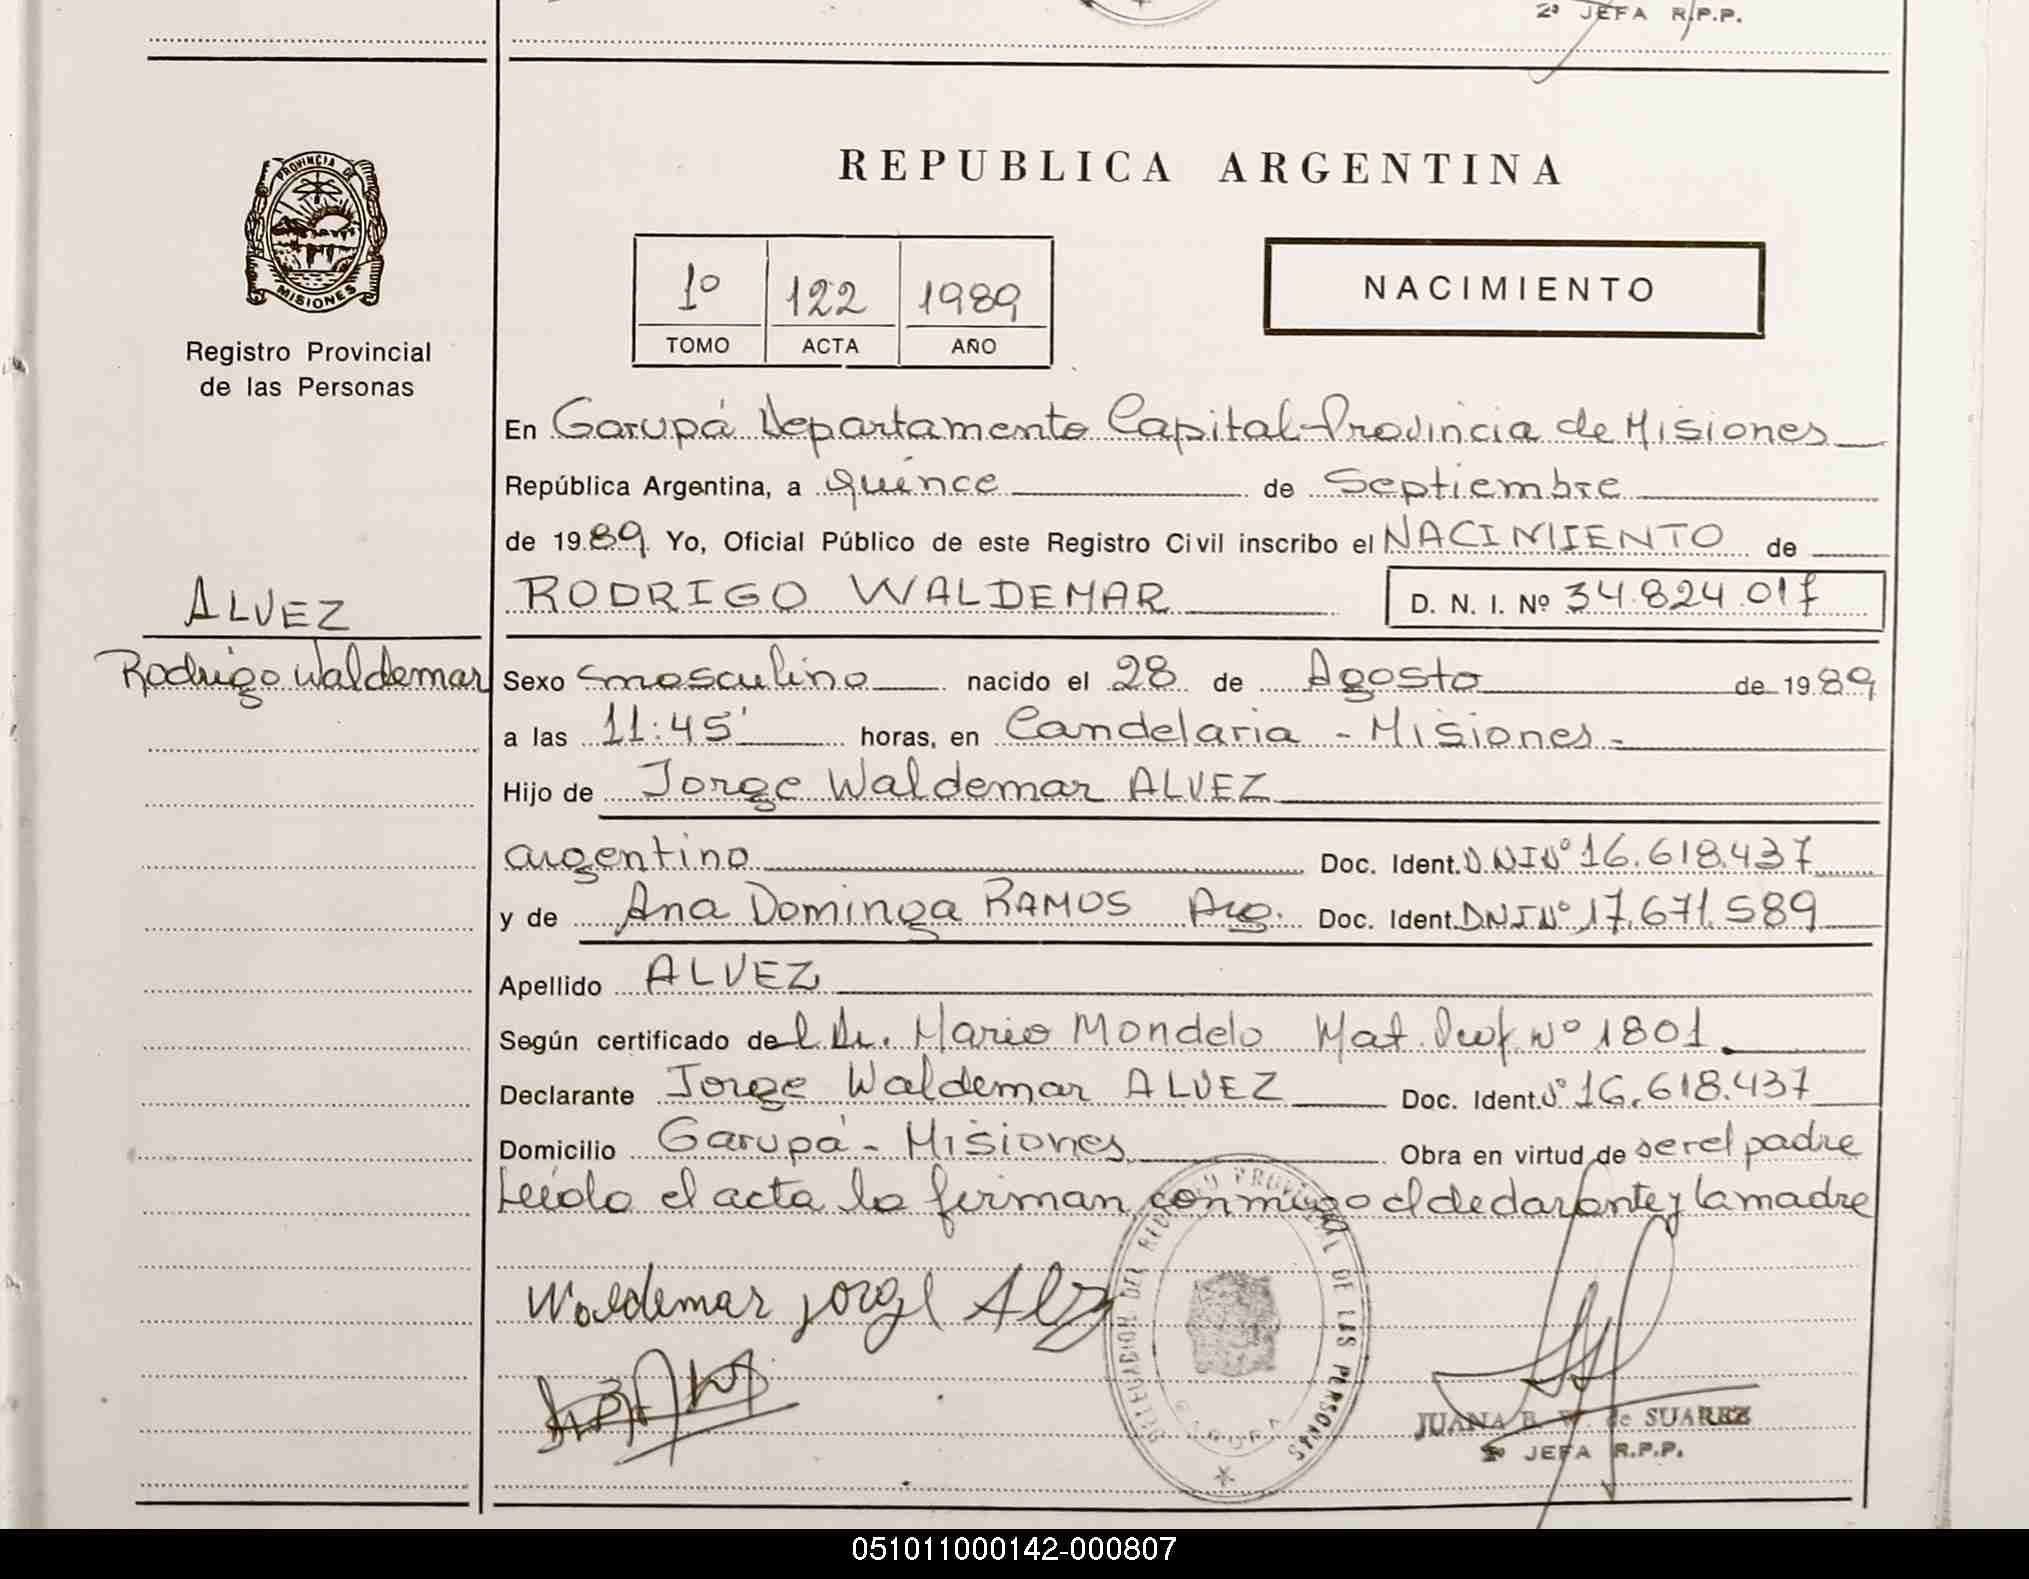 2º JEFA R.P.P.
PROVINCIA DE
MISIONES
Registro Provincial
de las Personas
REPUBLICA ARGENTINA
1º 122 1989
TOMO ACTA AÑO
NACIMIENTO
En Garupá Departamento Capital-Provincia de Misiones
República Argentina, a quince de Septiembre
de 1989 Yo, Oficial Público de este Registro Civil inscribo el NACIMIENTO de
ALVEZ
Rodrigo Waldemar
RODRIGO WALDEMAR D. N. I. Nº 34.824.017
Sexo masculino nacido el 28 de Agosto de 1989
a las 11:45' horas, en Candelaria - Misiones.
Hijo de Jorge Waldemar ALVEZ
argentino Doc. Ident. DNI Nº 16.618.437
y de Ana Dominga RAMOS Arg. Doc. Ident. DNI Nº 17.671.589
Apellido ALVEZ
Según certificado del Dr. Mario Mondelo Mat. Prof. Nº 1801
Declarante Jorge Waldemar ALVEZ Doc. Ident. Nº 16.618.437
Domicilio Garupá - Misiones Obra en virtud de ser el padre
Leído el acta lo firman conmigo el declarante y la madre
Waldemar Jorge
DELEGACION DEL REGISTRO PROVINCIAL DE LAS PERSONAS
GARUPA
JUANA B. W. de SUAREZ
2º JEFA R.P.P.
051011000142-000807